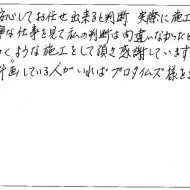 安心してお任せ出来ると判断 実際に施工
寧な仕事を見て私の判断は間違いなかったと
くような施工をして頂き感謝しています
計画している人がいればプロタイムズ様を